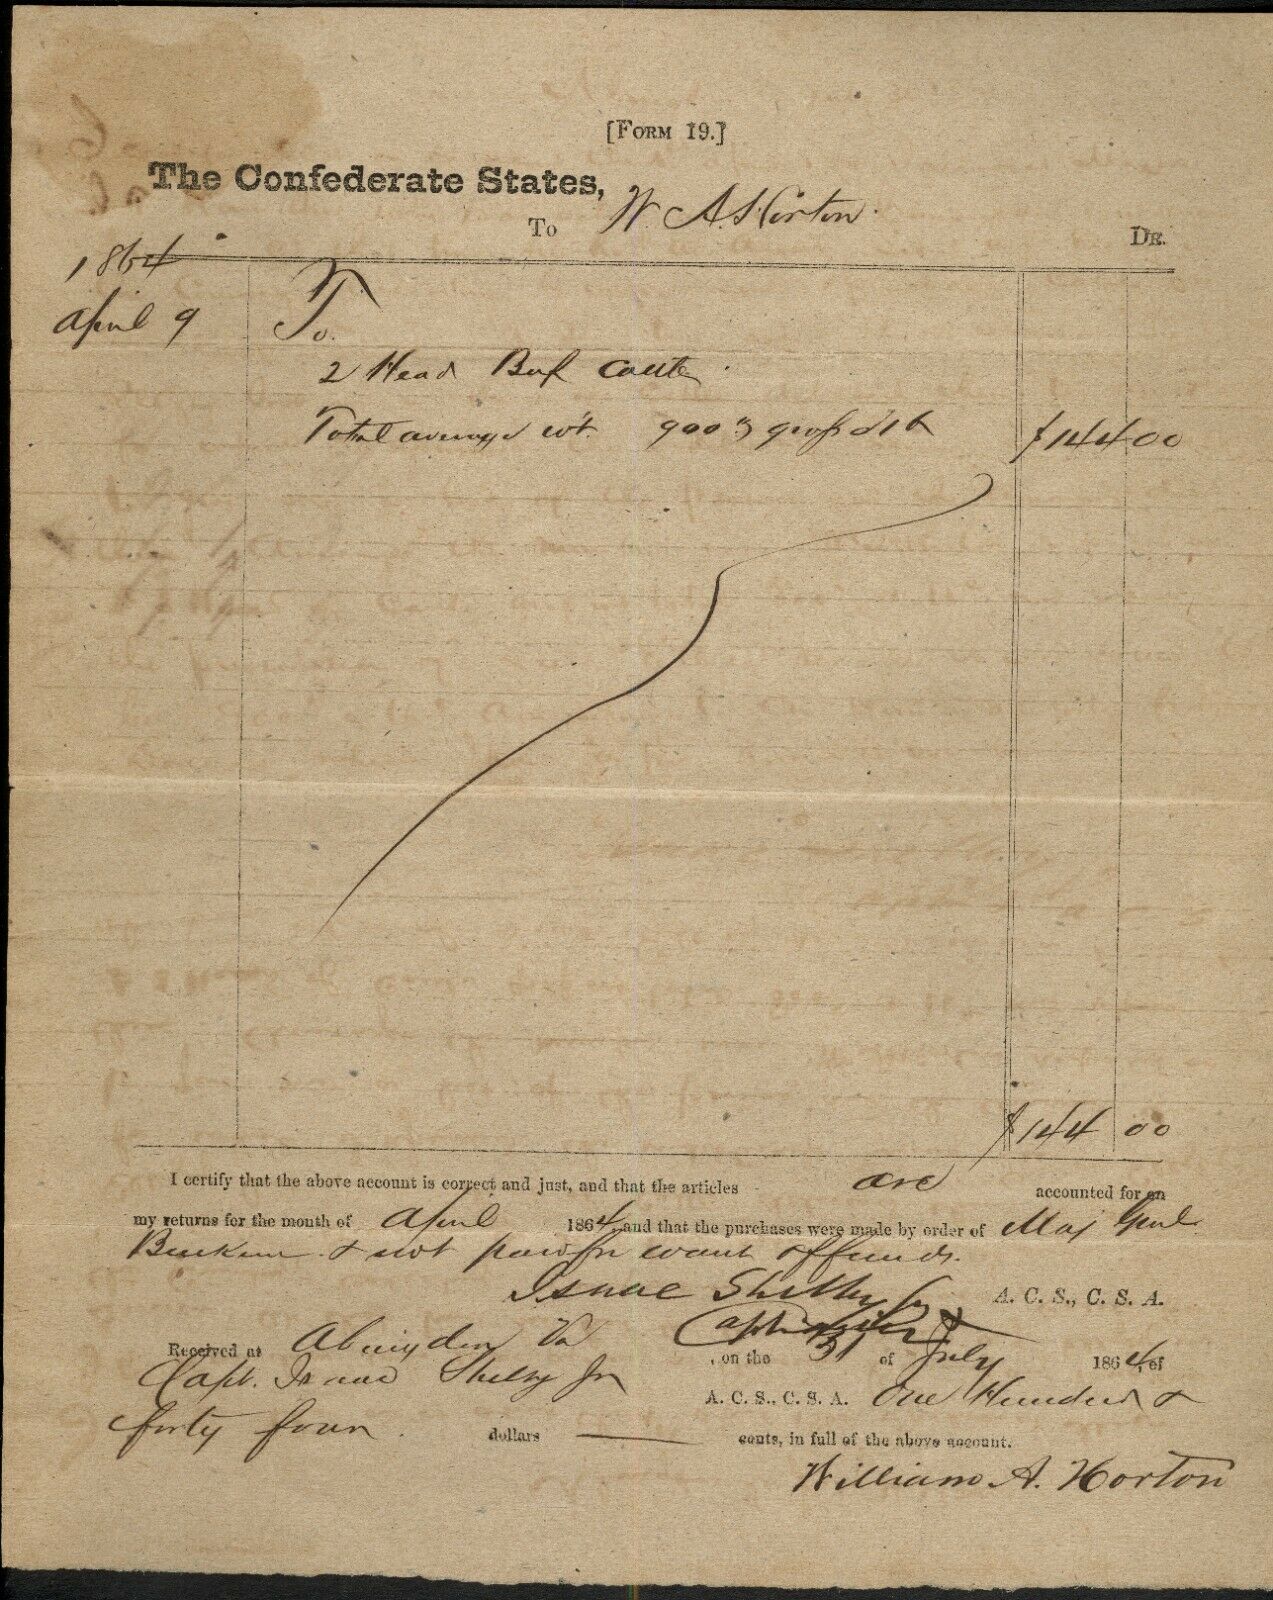 [FORM 19.]
The Confederate States,
To W. A. Horton. DR.
1864
April 9 To.
2 Head Beef Cattle.
Total average wt. 900 gross $144 00
$144 00
I certify that the above account is correct and just, and that the articles are accounted for on
my returns for the month of April 1864, and that the purchases were made by order of Maj
& not paid for want of funds.
Isaac Shelby Jr A. C. S., C. S. A.
Capt
Received at Abingdon Va, on the 31 of July 1864, of
Capt. Isaac Shelby Jr A. C. S., C. S. A. One Hundred &
forty four dollars cents, in full of the above account.
William A. Horton